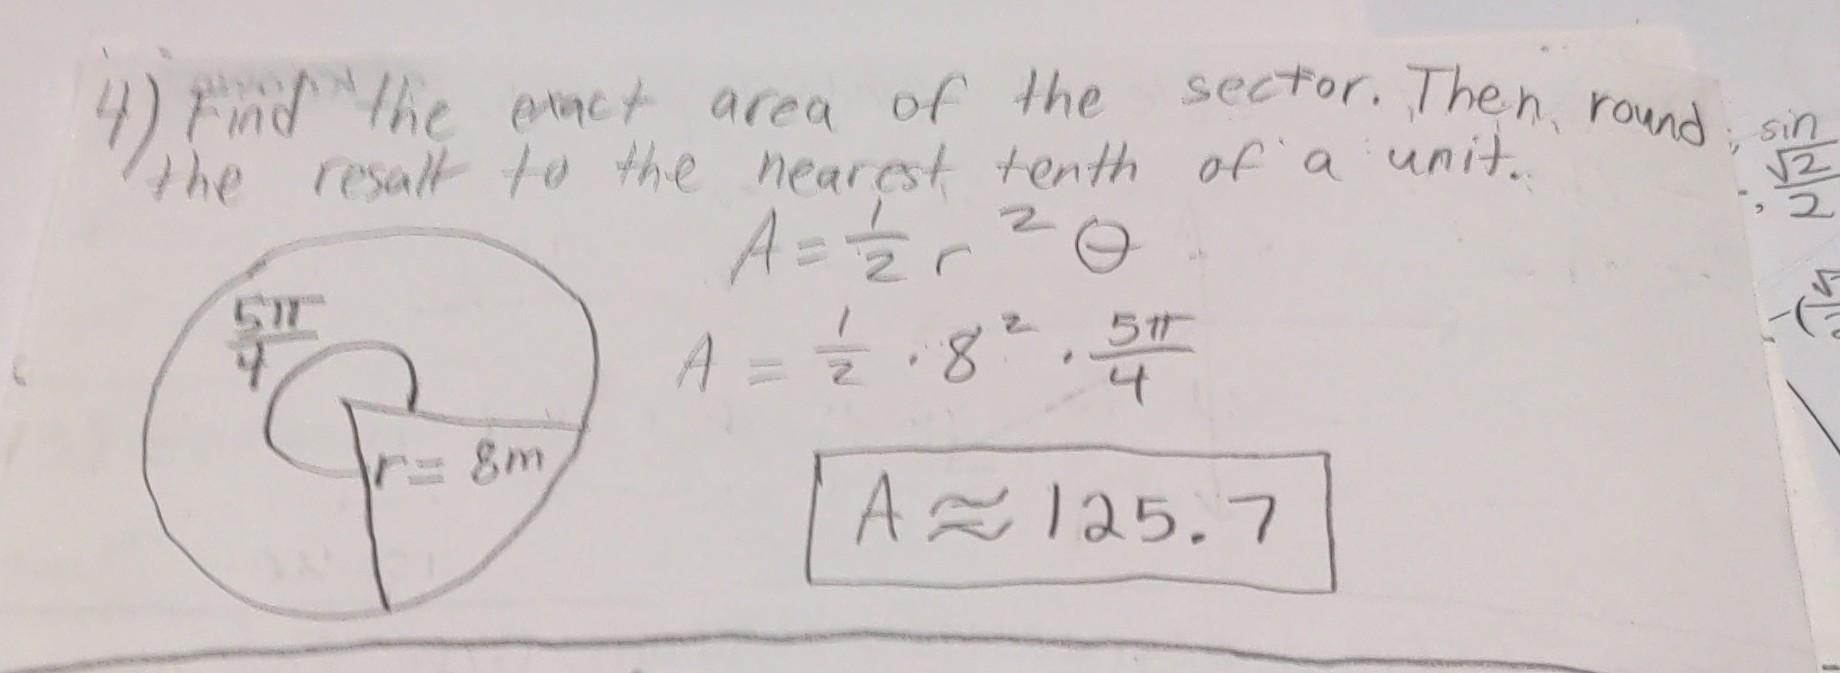 4) Find the exact area of the sector. Then, round
the result to the nearest tenth of a unit.
A = 1/2 r² θ
A = 1/2 · 8² · 5π/4
5π/4
r = 8m
A ≈ 125.7
sin
√2/2